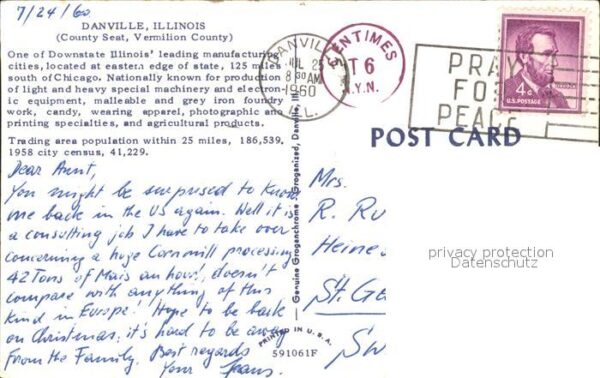 7/24/60
DANVILLE, ILLINOIS
(County Seat, Vermilion County)
One of Downstate Illinois' leading manufacturing
cities, located at eastern edge of state, 125 miles
south of Chicago. Nationally known for production
of light and heavy special machinery and electron-
ic equipment, malleable and grey iron foundry
work, candy, wearing apparel, photographic
printing specialties, and agricultural products.
Trading area population within 25 miles, 186,539.
1958 city census, 41,229.
Dear Aunt,
You might be surprised to know
one back in the US again. Well it is
a consulting job I have to take over
concerning a huge Cornmill processing
42 Tons of Mais an hour, doesn't
compare with anything of this
kind in Europe! Hope to be back
on Christmas, it's hard to be away
from the Family. Best regards
Your
Genuine Groganchrome - Groganized, Danville, Ill.
PRINTED IN U.S.A.
591061F
DANVILLE
JUL 25
8 30 AM
1960
ILL.
CENTIMES
T 6
N.Y.N.
PRAY
FOR
PEACE
4¢
U.S. POSTAGE
POST CARD
Mrs.
R. Ru
Heine
St. Ga
Sw
privacy protection
Datenschutz